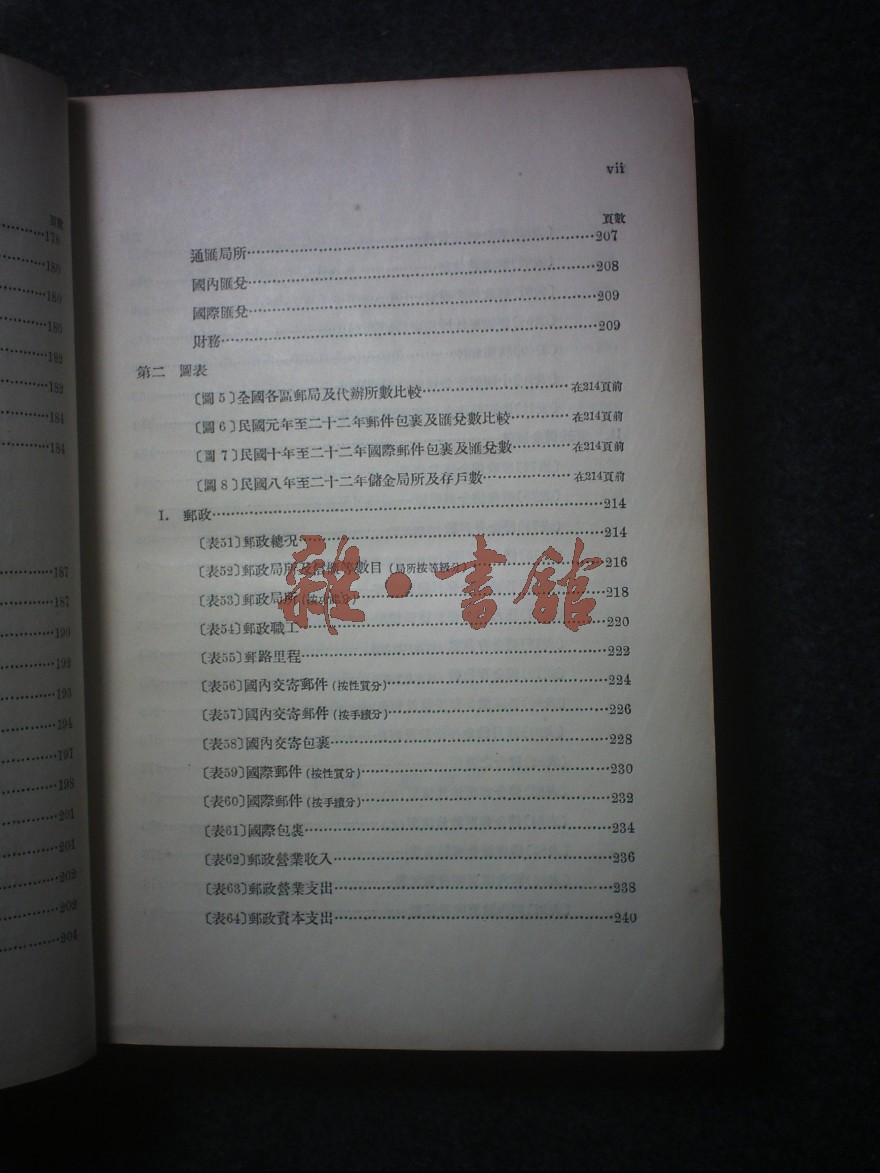 頁數
178
180
180
180
182
182
184
184
187
187
190
192
193
194
197
198
201
201
202
202
204
vii
頁數
通匯局所……207
國內匯兌……208
國際匯兌……209
財務……209
第二 圖表
〔圖5〕全國各區郵局及代辦所數比較……在214頁前
〔圖6〕民國元年至二十二年郵件包裹及匯兌數比較……在214頁前
〔圖7〕民國十年至二十二年國際郵件包裹及匯兌數……在214頁前
〔圖8〕民國八年至二十二年儲金局所及存戶數……在214頁前
I. 郵政……214
〔表51〕郵政總況……214
〔表52〕郵政局所及信櫃等數目(局所按等級分)……216
〔表53〕郵政局所(按功能分)……218
〔表54〕郵政職工……220
〔表55〕郵路里程……222
〔表56〕國內交寄郵件(按性質分)……224
〔表57〕國內交寄郵件(按手續分)……226
〔表58〕國內交寄包裹……228
〔表59〕國際郵件(按性質分)……230
〔表60〕國際郵件(按手續分)……232
〔表61〕國際包裹……234
〔表62〕郵政營業收入……236
〔表63〕郵政營業支出……238
〔表64〕郵政資本支出……240
雜·書館